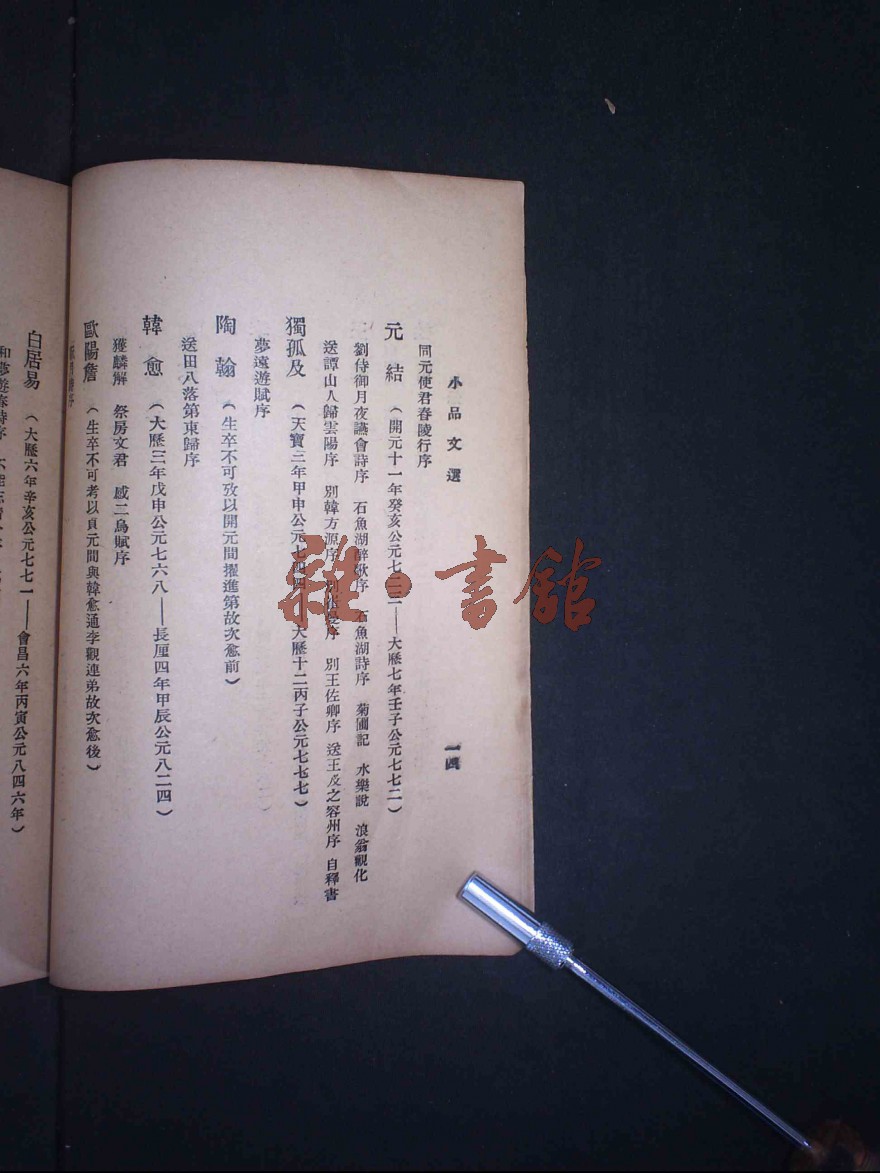 小品文選
一四
同元使君舂陵行序
元結（開元十一年癸亥公元七二三——大曆七年壬子公元七七二）
劉侍御月夜讌會詩序 石魚湖醉歌序 石魚湖詩序 菊圃記 水樂說 浪翁觀化
送譚山人歸雲陽序 別韓方源序 別王佐卿序 送王及之容州序 自釋書
獨孤及（天寶三年甲申公元七四四 大歷十二丙子公元七七七）
夢遠遊賦序
陶翰（生卒不可攷以開元間擢進第故次愈前）
送田八落第東歸序
韓愈（大歷三年戊申公元七六八——長厘四年甲辰公元八二四）
獲麟解 祭房文君 感二鳥賦序
歐陽詹（生卒不可考以貞元間與韓愈通李觀連弟故次愈後）
白居易（大歷六年辛亥公元七七一——會昌六年丙寅公元八四六年）
和夢遊春詩序
雜·書館